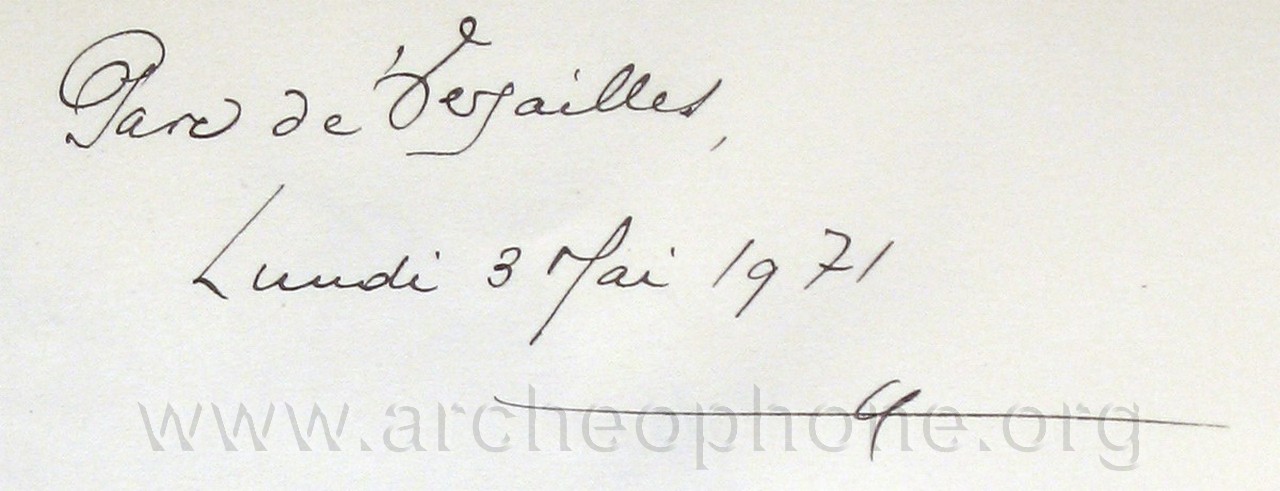 Parc de Versailles,
Lundi 3 Mai 1971
www.archeophone.org